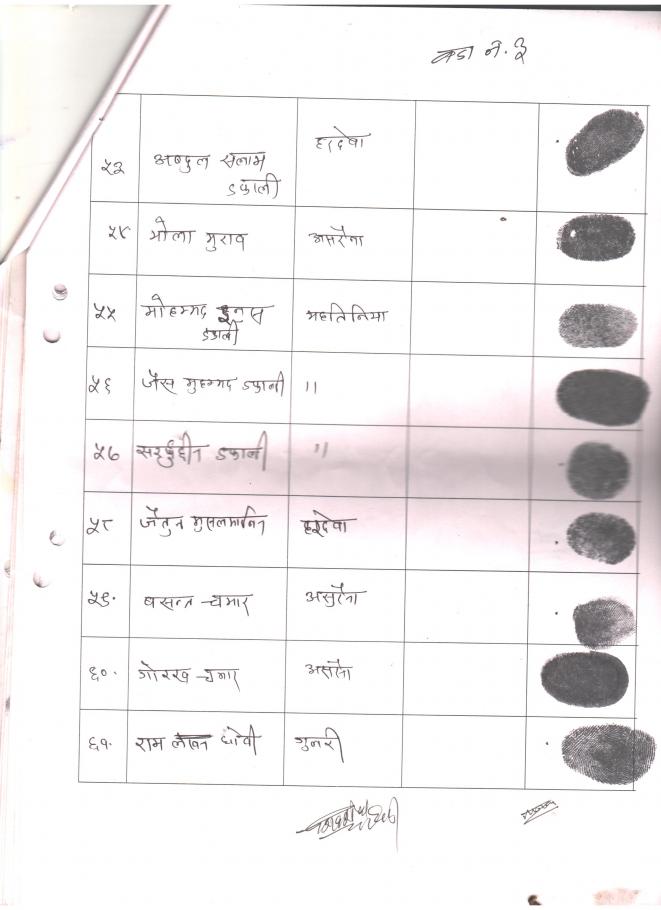 वडा नं. ३
५३ अब्दुल सलाम हरदेवा
डफाली
५४ भोला मुराव असरैना
५५ मोहम्मद इनुस महतिनिया
डफाली
५६ जैस मुहम्मद डफाली "
५७ सरफुद्दीन डफाली "
५८ जैतुन मुसलमानिन हरदेवा
५९. बसन्त चमार असुरैना
६०. गोरख चमार असरैना
६१. राम धोवी गुनरी